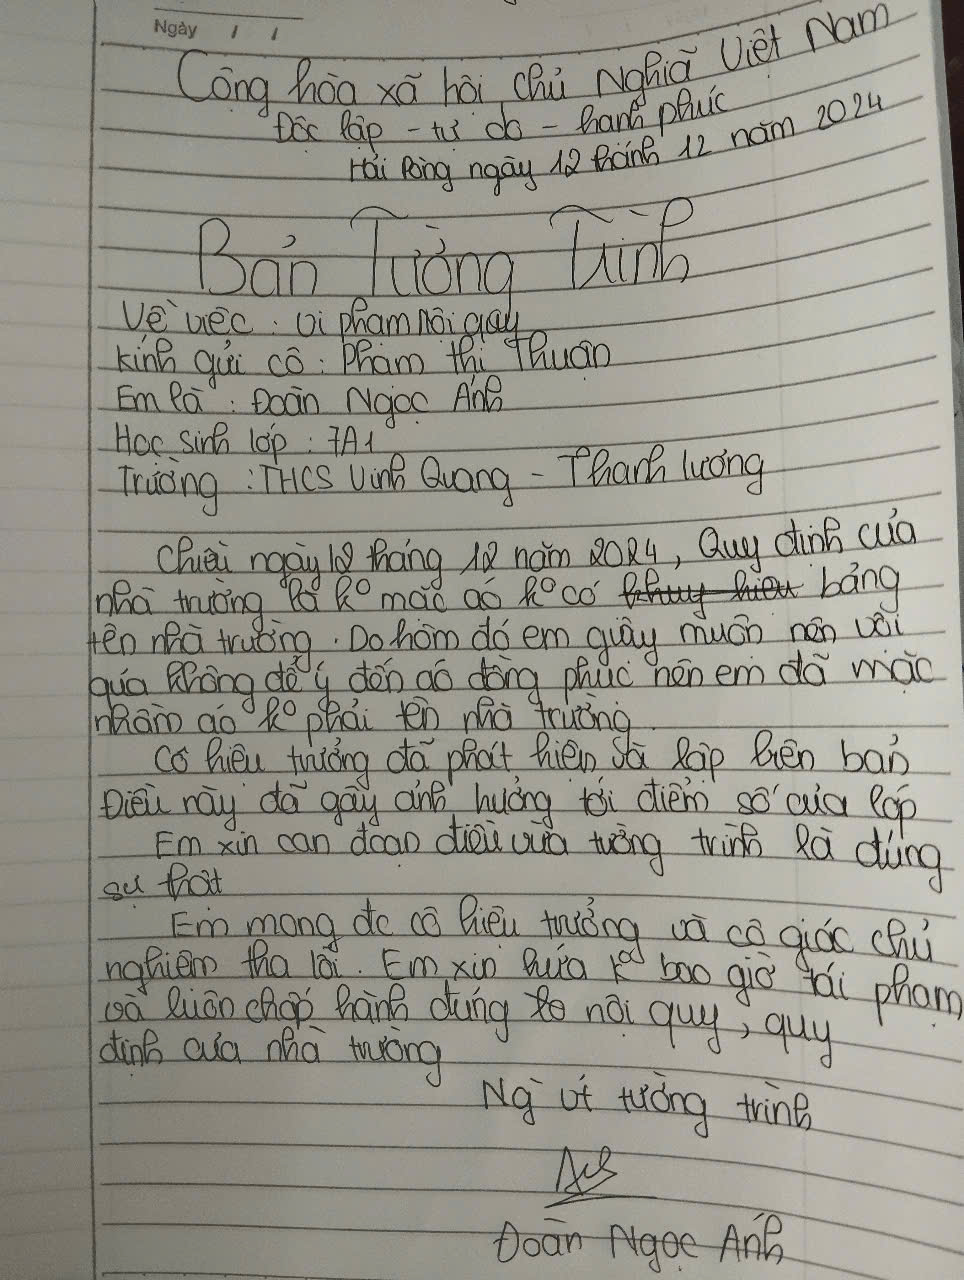 Ngày / /
Cộng hòa xã hội chủ Nghĩa Việt Nam
Độc lập - tự do - hạnh phúc
Hải Phòng ngày 12 tháng 12 năm 2024
Bản Tường Trình
Về việc : vi phạm nội quy
Kính gửi cô : Phạm thị Thuận
Em là : Đoàn Ngọc Ánh
Học sinh lớp : 7A1
Trường : THCS Vinh Quang - Thanh lương
Chiều ngày 12 tháng 12 năm 2024, Quy định của
nhà trường là ko mặc áo ko có khuy hiệu bảng
tên nhà trường. Do hôm đó em quậy muộn nên vội
quá không để ý đến áo đồng phục nên em đã mặc
nhầm áo ko phải tên nhà trường
Cô hiệu trưởng đã phát hiện và lập biên bản
Điều này đã gây ảnh hưởng tới điểm số của lớp
Em xin can đoan điều vừa tường trình là đúng
sự thật
Em mong đc cô hiệu trưởng và cô giác chủ
nghiệm tha lỗi. Em xin hứa ko bao giờ tái phạm
và luôn chấp hành đúng to nội quy, quy
định của nhà trường
Ng vt tường trình
Đoàn Ngọc Ánh